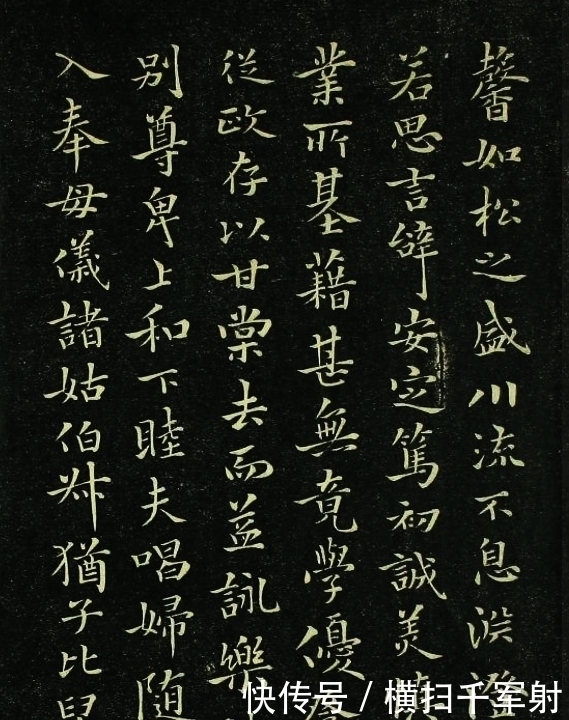 馨如松之盛川流不息淵澄
若思言辞安定篤初誠美慎
業所基藉甚無竟學優
從政存以甘棠去而益詠樂
別尊卑上和下睦夫唱婦随
入奉母儀諸姑伯叔猶子比兒
快传号 / 横扫千军射